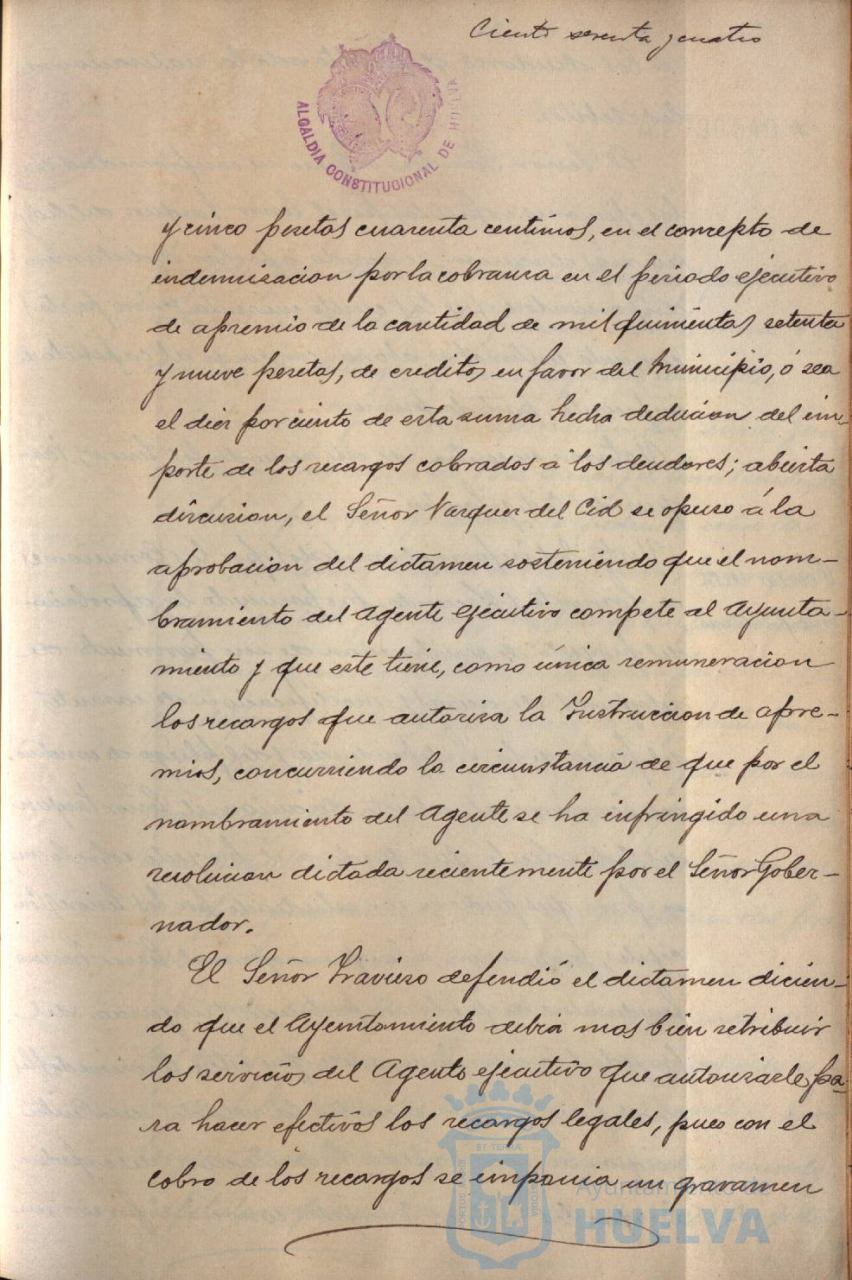 Ciento sesenta y cuatro
ALCALDIA CONSTITUCIONAL DE HUELVA
y cinco pesetas cuarenta centimos, en el concepto de
indemnizacion por la cobranza en el periodo ejecutivo
de apremio de la cantidad de mil quinientas setenta
y nueve pesetas, de creditos en favor del Municipio, ó sea
el diez por ciento de esta suma hecha deducion del im-
porte de los recargos cobrados a los deudores; abierta
discusion, el Señor Vazquez del Cid se opuso á la
aprobacion del dictamen sosteniendo que el nom-
bramiento del Agente ejecutivo compete al Ayunta-
miento y que este tiene, como única remuneracion
los recargos que autoriza la Instruccion de apre-
mios, concurriendo la circunstancia de que por el
nombramiento del Agente se ha infringido una
resolucion dictada recientemente por el Señor Gober-
nador.
El Señor Travieso defendió el dictamen dicien-
do que el Ayuntamiento debia mas bien retribuir
los servicios del Agente ejecutivo que autorizarle pa-
ra hacer efectivos los recargos legales, pues con el
cobro de los recargos se imponia un gravamen
Ayuntamiento
HUELVA